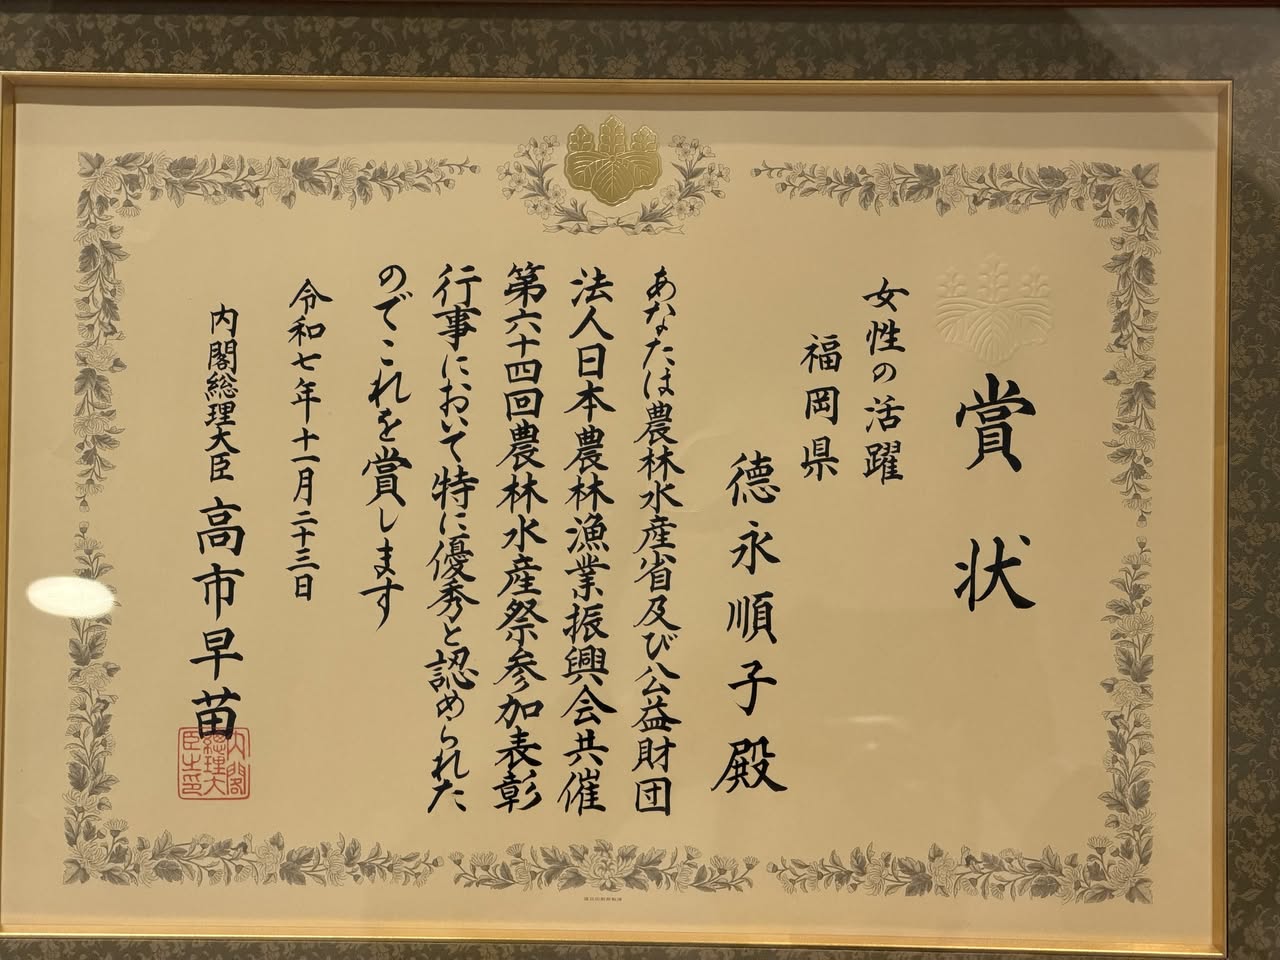 賞状
女性の活躍
福岡県
德永順子殿
あなたは農林水産省及び公益財団
法人日本農林漁業振興会共催
第六十四回農林水産祭参加表彰
行事において特に優秀と認められた
のでこれを賞します
令和七年十一月二十三日
内閣総理大臣 高市早苗
内閣總理大臣之印